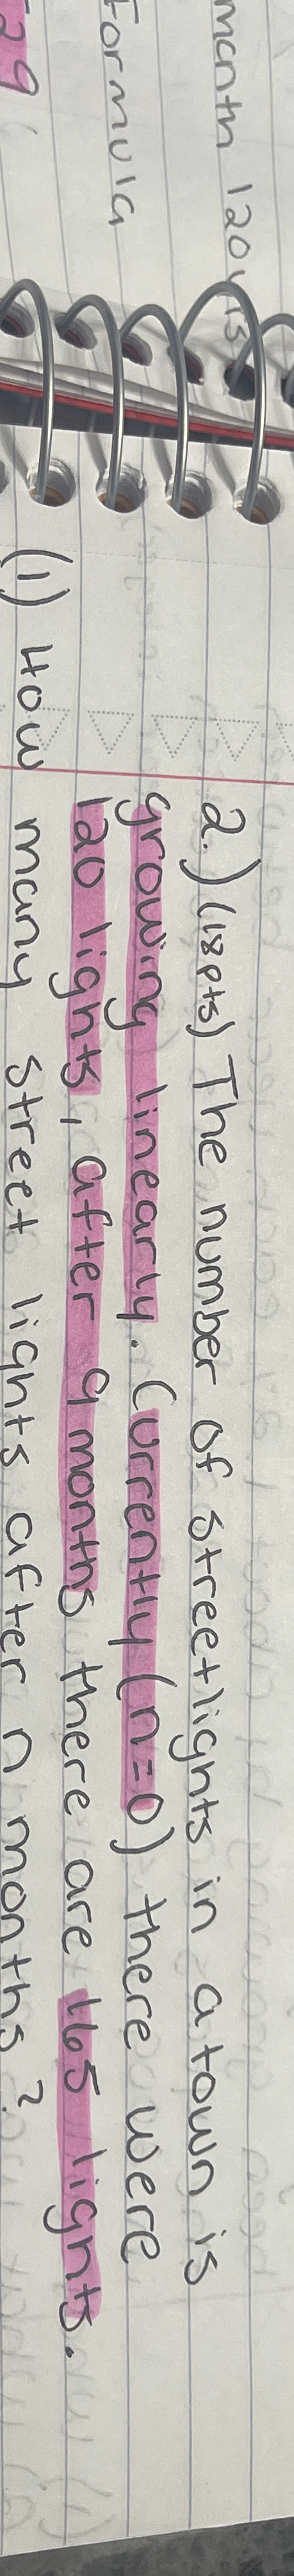 month 120 is
formula
29
2.) (18pts) The number of streetlights in a town is
growing linearly. Currently (n=0) there were
120 lights, after 9 months there are 165 lights.
(1) How many street lights after n months?